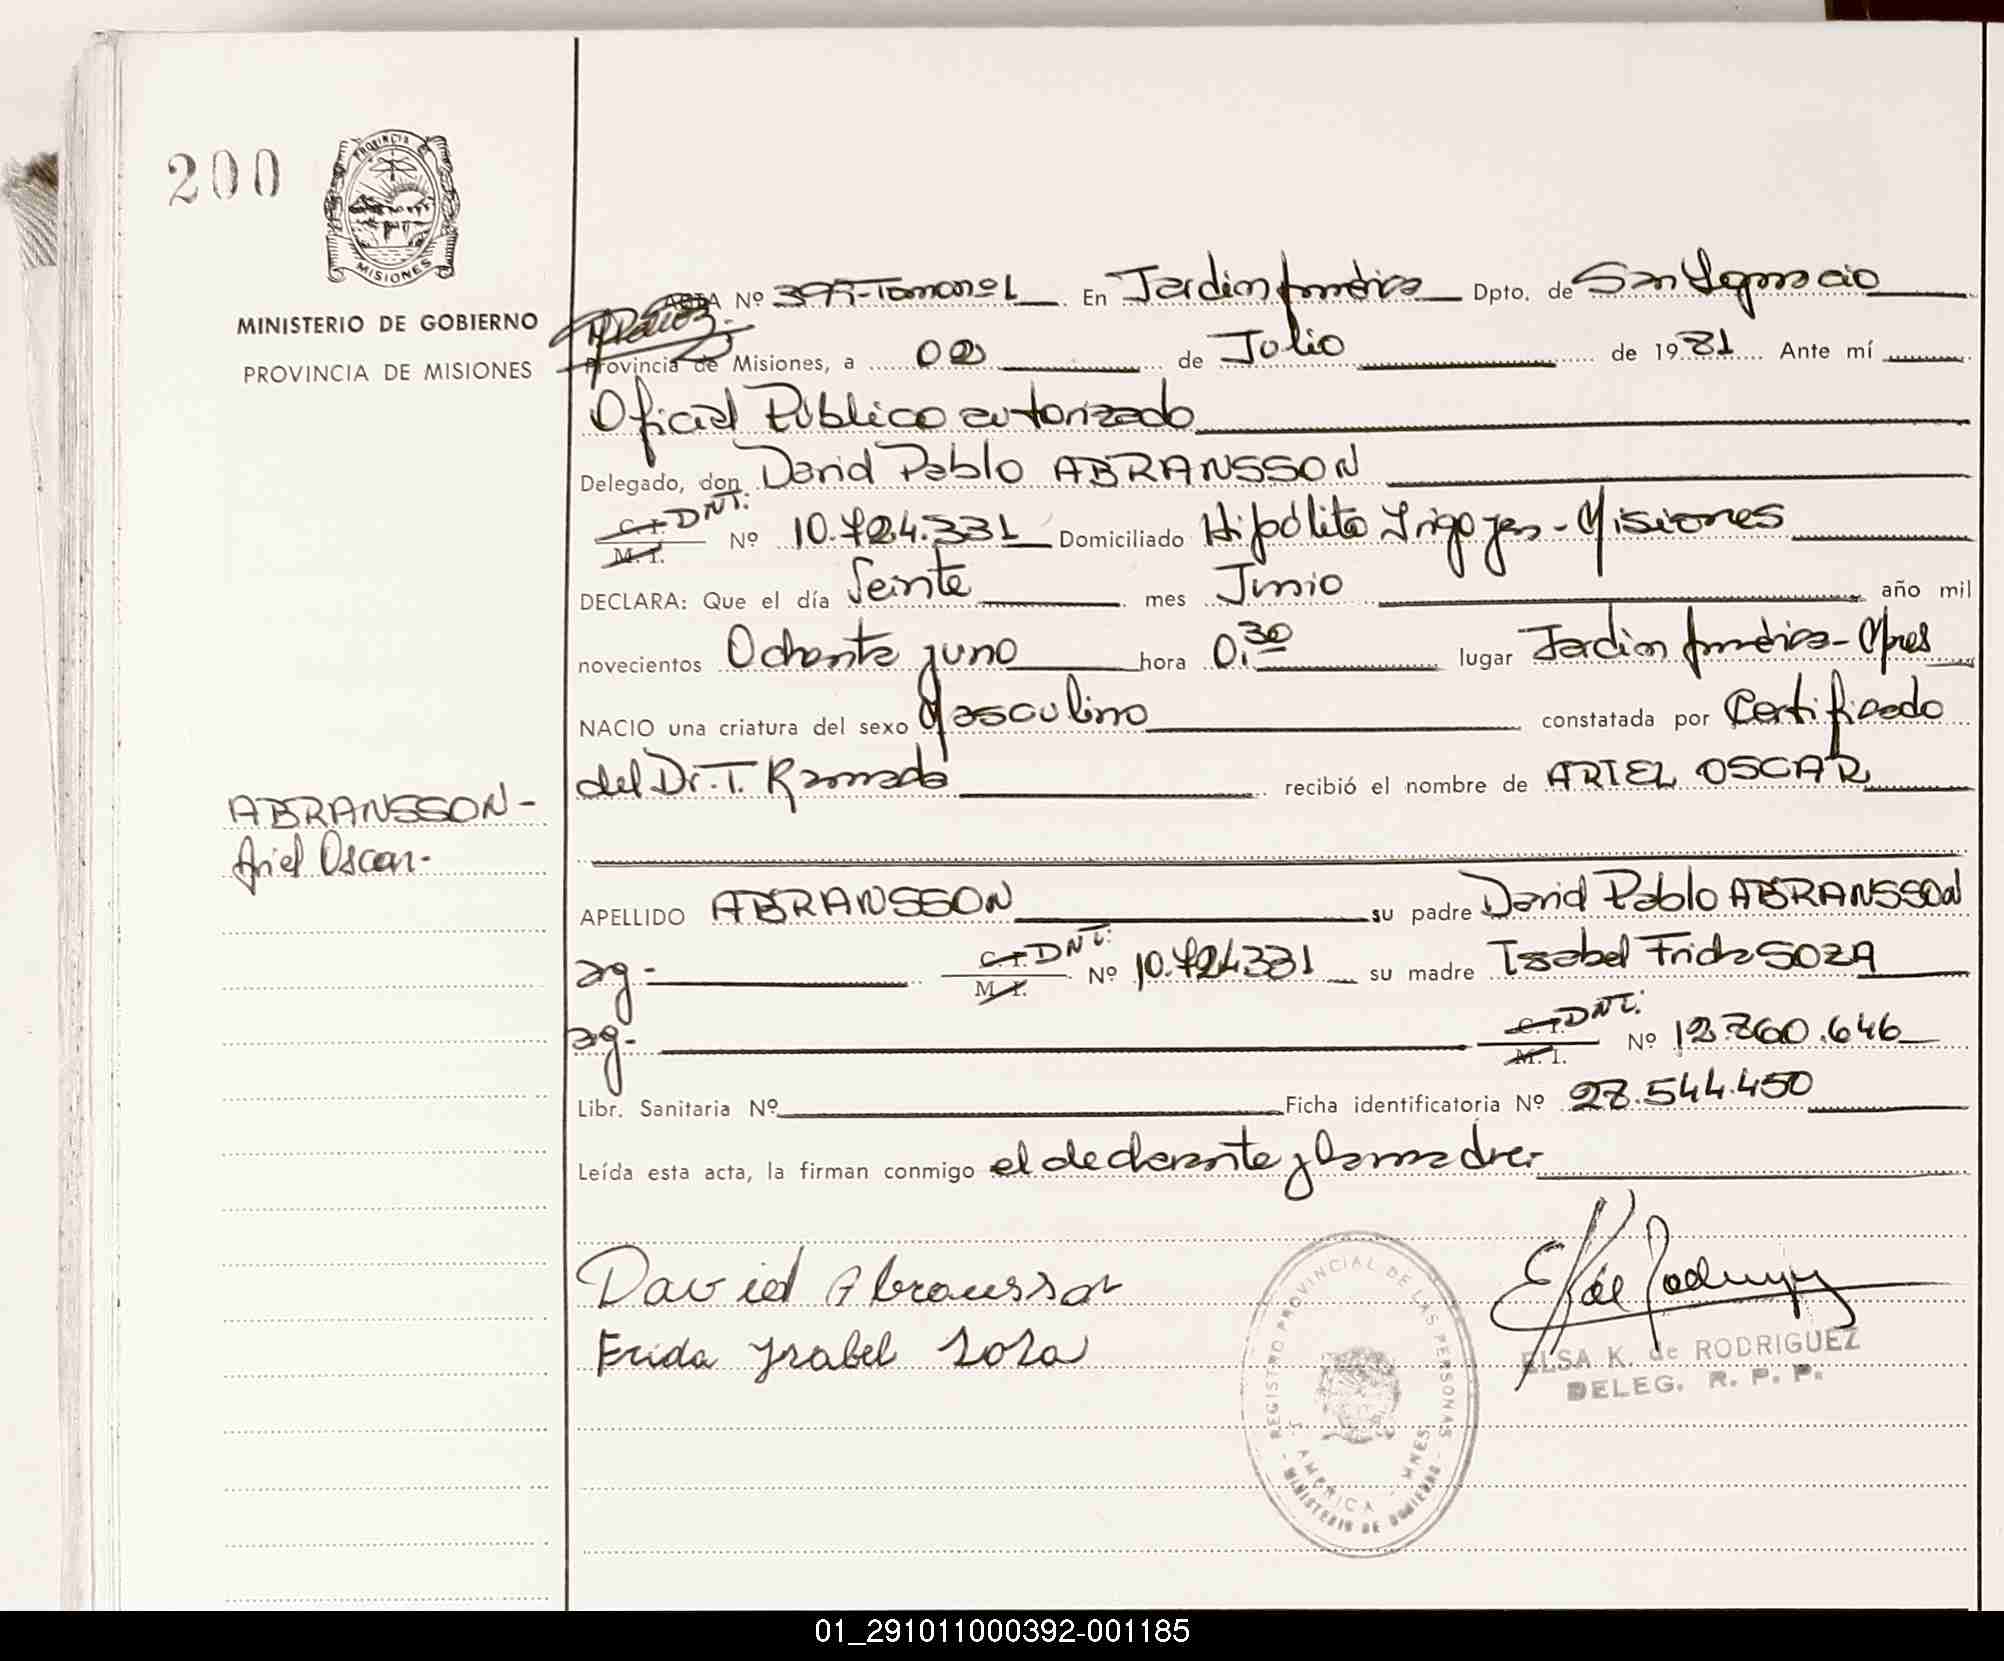 200
PROVINCIA DE
MISIONES
MINISTERIO DE GOBIERNO
PROVINCIA DE MISIONES
ACTA Nº 397-Tomo nº 1 En Jardin América Dpto. de San Ignacio
Provincia de Misiones, a 02 de Julio de 1981 Ante mí
Oficial Público autorizado
Delegado, don David Pablo ABRANSSON
C. I. DNI. M. I. Nº 10.724.331 Domiciliado Hipólito Irigoyen - Misiones
DECLARA: Que el día Veinte mes Junio año mil
novecientos Ochenta y uno hora 0.30 lugar Jardin América - Mnes
NACIO una criatura del sexo Masculino constatada por Certificado
del Dr. T. Ramada recibió el nombre de ARIEL OSCAR
ABRANSSON -
Ariel Oscar.-
APELLIDO ABRANSSON su padre David Pablo ABRANSSON
ag- C. I. DNI. M. I. Nº 10.724331 su madre Isabel Frida SOZA
ag- C. I. DNI. M. I. Nº 12.760.646
Libr. Sanitaria Nº Ficha identificatoria Nº 28.544.450
Leída esta acta, la firman conmigo el declarante y la madre.-
David Abransson
Frida Ysabel Soza
E K de Rodriguez
ELSA K. de RODRIGUEZ
DELEG. R. P. P.
REGISTRO PROVINCIAL DE LAS PERSONAS
J. AMERICA - MNES.
- MINISTERIO DE GOBIERNO -
01_291011000392-001185